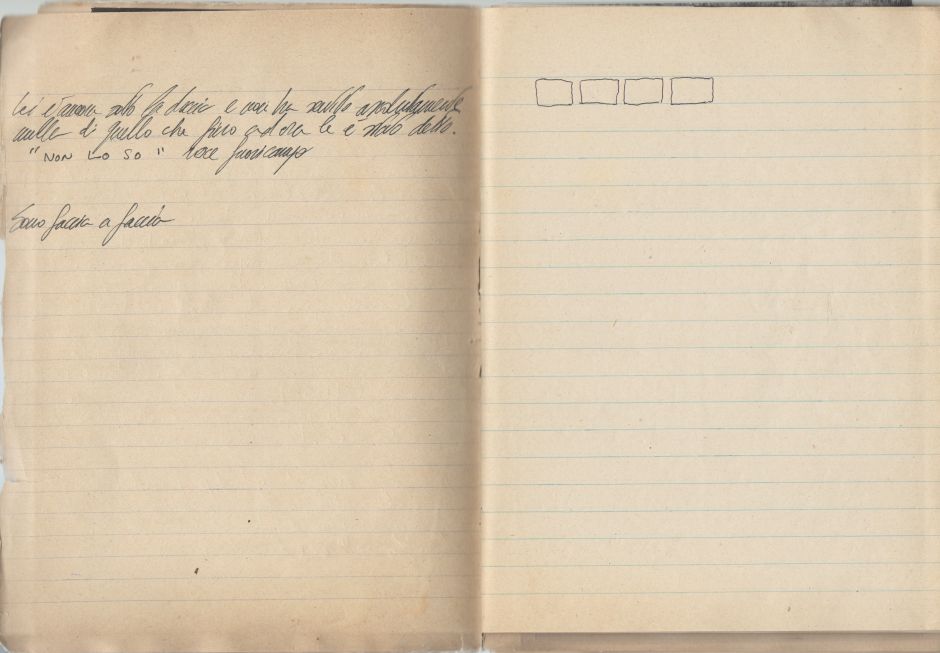 Lei è ancora sotto la doccia e non ha sentito assolutamente
nulla di quello che fino ad ora le è stato detto.
"NON LO SO" voce fuoricampo
Sono faccia a faccia